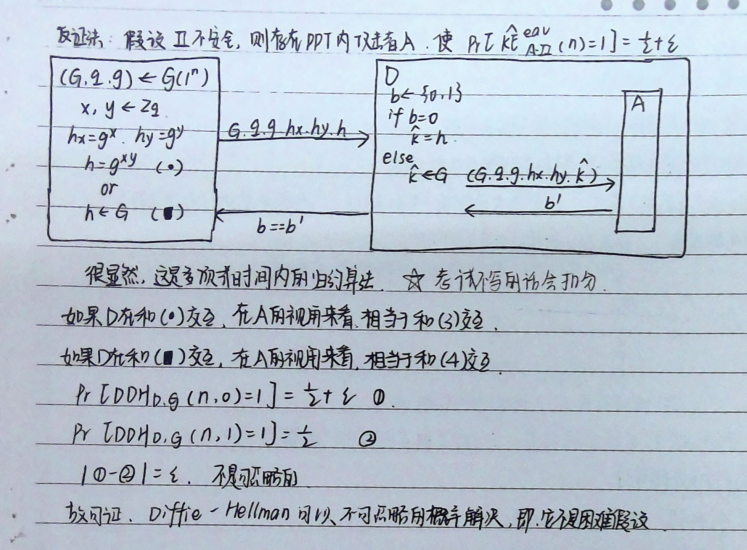 反证法: 假设 Π 不安全, 则存在PPT内攻击者A. 使 Pr[K̂E^eav_A.Π (n)=1]=½+ε
(G.q.g)←G(1^n)
x, y ← Zq
hx=g^x. hy=g^y
h=g^xy (•)
or
h←G (■)
G.q.g hx.hy.h
b==b'
D
b←{0,1}
if b=0
k̂=h
else
k̂←G (G.q.g.hx.hy.k̂)
b'
A
很显然, 这是多项式时间内的归约算法. ☆ 考试不写的话会扣分.
如果D在和(•)交互, 在A的视角来看, 相当于和(3)交互.
如果D在和(■)交互, 在A的视角来看, 相当于和(4)交互
Pr[DDH_D.G (n,0)=1]=½+ε ①.
Pr[DDH_D.G (n,1)=1]=½ ②
|①-②|=ε. 不是可忽略的
故可证. Diffie-Hellman 可以不可忽略的概率解决, 即它不是困难假设